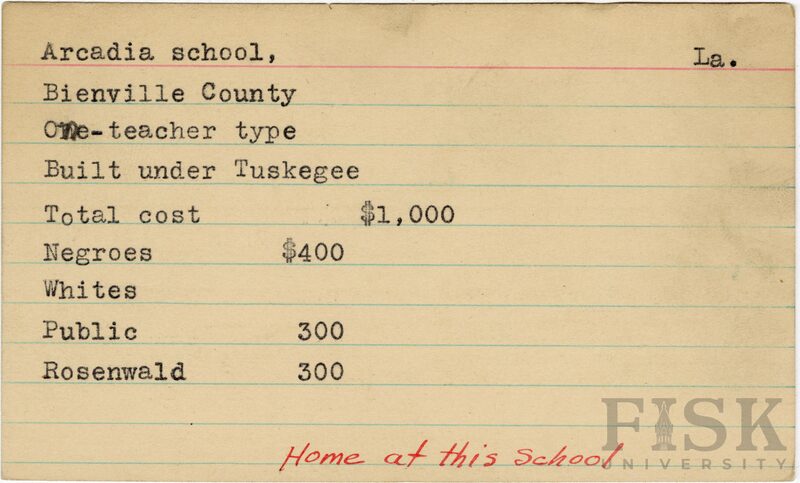 Arcadia school, La.
Bienville County
One-teacher type
Built under Tuskegee
Total cost $1,000
Negroes $400
Whites
Public 300
Rosenwald 300
Home at this School
FISK
UNIVERSITY